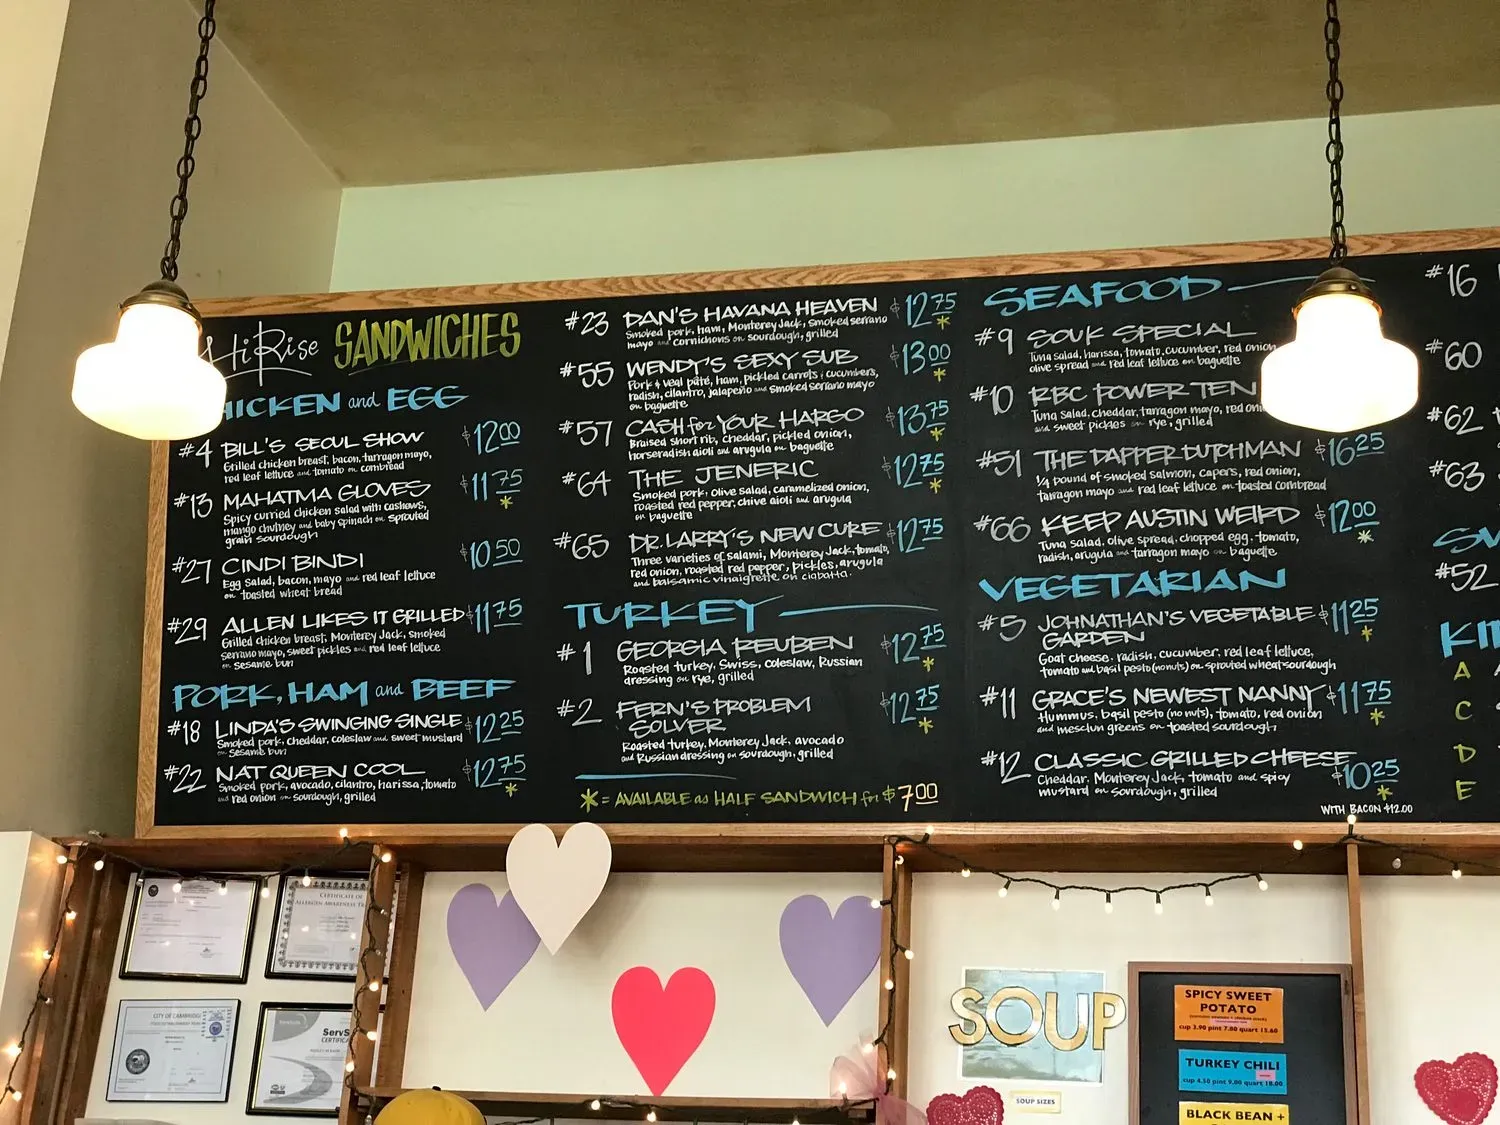 HiRise SANDWICHES
HICKEN and EGG
#4 BILL'S SEOUL SHOW $12.00
Grilled chicken breast, bacon, tarragon mayo,
red leaf lettuce and tomato on cornbread
#13 MAHATMA GLOVES $11.75 *
Spicy curried chicken salad with cashews,
mango chutney and baby spinach on sprouted
grain sourdough
#27 CINDI BINDI $10.50
Egg salad, bacon, mayo and red leaf lettuce
on toasted wheat bread
#29 ALLEN LIKES IT GRILLED $11.75
Grilled chicken breast, Monterey Jack, smoked
serrano mayo, sweet pickles and red leaf lettuce
on sesame bun
PORK, HAM and BEEF
#18 LINDA'S SWINGING SINGLE $12.25
Smoked pork, cheddar, coleslaw and sweet mustard
on sesame bun
#22 NAT QUEEN COOL $12.75 *
Smoked pork, avocado, cilantro, harissa, tomato
and red onion on sourdough, grilled
#23 DAN'S HAVANA HEAVEN $12.75 *
Smoked pork, ham, Monterey Jack, smoked serrano
mayo and cornichons on sourdough, grilled
#55 WENDY'S SEXY SUB $13.00 *
Pork & veal pâté, ham, pickled carrots & cucumbers,
radish, cilantro, jalapeño and smoked serrano mayo
on baguette
#57 CASH for YOUR HARGO $13.75 *
Braised short rib, cheddar, pickled onion,
horseradish aioli and arugula on baguette
#64 THE JENERIC $12.75 *
Smoked pork, olive salad, caramelized onion,
roasted red pepper, chive aioli and arugula
on baguette
#65 DR. LARRY'S NEW CURE $12.75
Three varieties of salami, Monterey Jack, tomato,
red onion, roasted red pepper, pickles, arugula
and balsamic vinaigrette on ciabatta.
TURKEY
#1 GEORGIA REUBEN $12.75 *
Roasted turkey, Swiss, coleslaw, Russian
dressing on rye, grilled
#2 FERN'S PROBLEM $12.75 *
SOLVER
Roasted turkey, Monterey Jack, avocado
and Russian dressing on sourdough, grilled
* = AVAILABLE as HALF SANDWICH for $7.00
SEAFOOD
#9 SOUK SPECIAL
Tuna salad, harissa, tomato, cucumber, red onion
olive spread and red leaf lettuce on baguette
#10 RBC POWER TEN
Tuna salad, cheddar, tarragon mayo, red
and sweet pickles on rye, grilled
#51 THE DAPPER DUTCHMAN $16.25
1/4 pound of smoked salmon, capers, red onion,
tarragon mayo and red leaf lettuce on toasted cornbread
#66 KEEP AUSTIN WEIRD $12.00 *
Tuna salad, olive spread, chopped egg, tomato,
radish, arugula and tarragon mayo on baguette
VEGETARIAN
#5 JOHNATHAN'S VEGETABLE $11.25 *
GARDEN
Goat cheese, radish, cucumber, red leaf lettuce,
tomato and basil pesto (no nuts) on sprouted wheat sourdough
#11 GRACE'S NEWEST NANNY $11.75 *
Hummus, basil pesto (no nuts), tomato, red onion
and mesclun greens on toasted sourdough
#12 CLASSIC GRILLED CHEESE $10.25 *
Cheddar, Monterey Jack, tomato and spicy
mustard on sourdough, grilled
WITH BACON $12.00
#16
#60
#62
#63
#52
A
C
D
E
CERTIFICATE OF
ALLERGEN AWARENESS
CITY OF CAMBRIDG
ServS
CERTIFICA
SOUP
SOUP SIZES
SPICY SWEET
POTATO
cup 3.90 pint 7.80 quart 15.60
TURKEY CHILI
cup 4.50 pint 9.00 quart 18.00
BLACK BEAN +